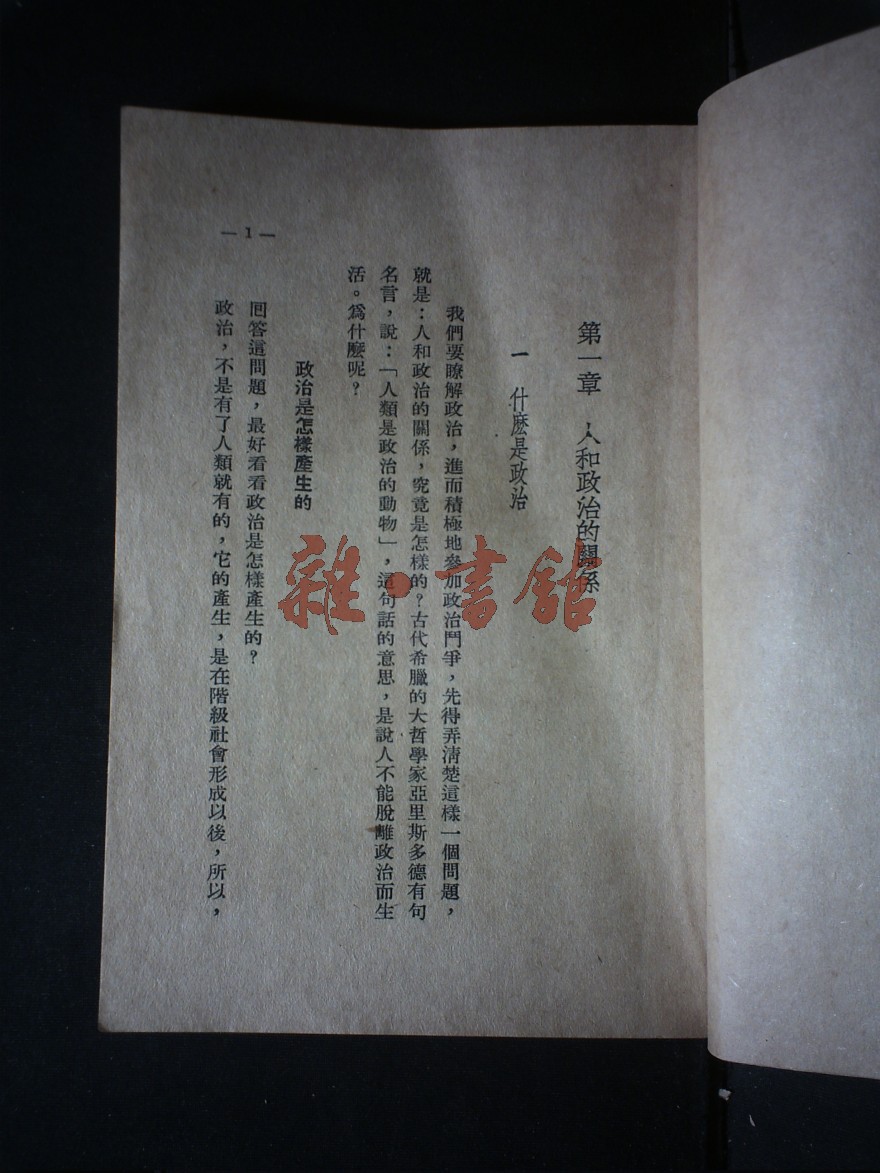 第一章　人和政治的關係
一　什麽是政治
我們要瞭解政治，進而積極地參加政治鬥爭，先得弄清楚這樣一個問題，
就是：人和政治的關係，究竟是怎樣的？古代希臘的大哲學家亞里斯多德有句
名言，說：「人類是政治的動物」，這句話的意思，是說人不能脫離政治而生
活。爲什麽呢？
政治是怎樣產生的
囘答這問題，最好看看政治是怎樣產生的？
政治，不是有了人類就有的，它的產生，是在階級社會形成以後，所以，
—1—
雜·書館